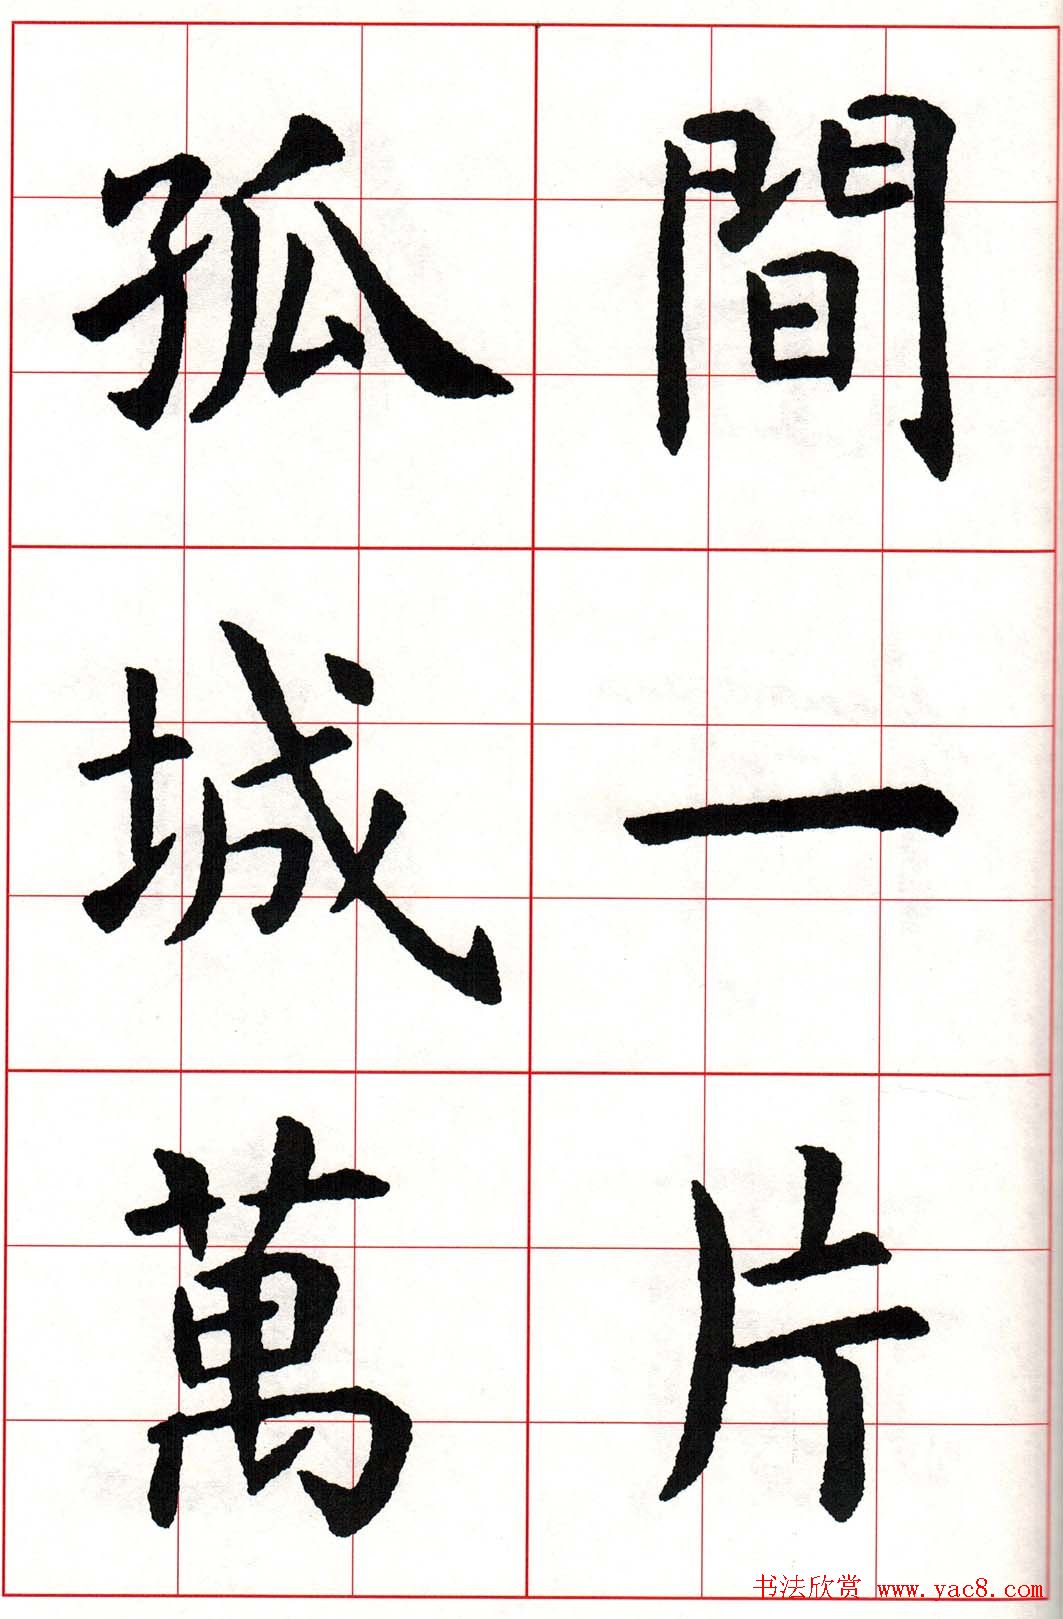 間一片
孤城萬
书法欣赏 www.yac8.com